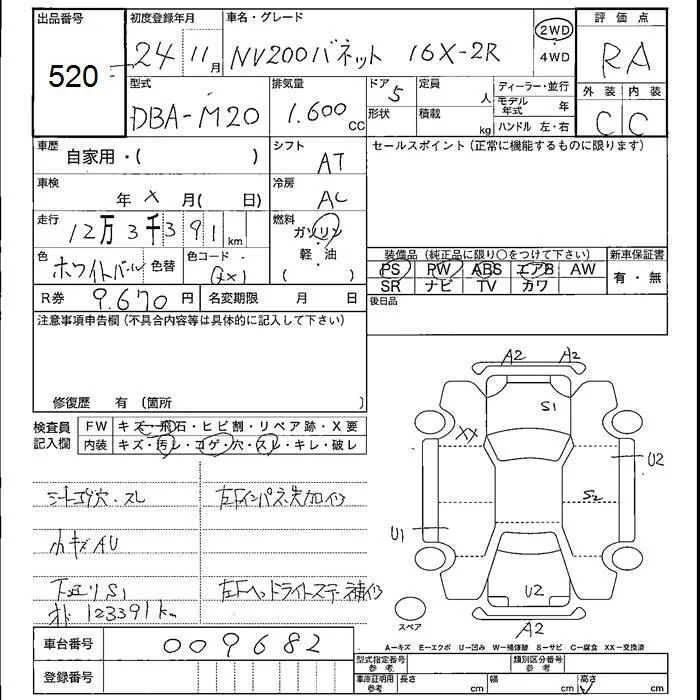 出品番号
520
初度登録年月
24 11月
車名・グレード
NV200バネット 16X-2R
2WD
4WD
評価点
RA
外装 内装
C C
型式
DBA-M20
排気量
1.600 CC
ドア
5
形状
定員
人
積載
kg
ディーラー・並行
モデル年式 年
ハンドル 左・右
車歴
自家用・( )
シフト
AT
セールスポイント(正常に機能するものに限ります)
車検
年 X 月( 日)
冷房
AC
走行
12万3千391 km
燃料
ガソリン
軽・油
色
ホワイトパール
色替
色コード
QX1
装備品(純正品に限り○をつけて下さい)
PS PW ABS エアB AW
SR ナビ TV カワ
新車保証書
有・無
R券 9.670円
名変期限 月 日
後日品
注意事項申告欄(不具合内容等は具体的に記入して下さい)
修復歴 有(箇所 )
検査員記入欄
FW キズ・飛石・ヒビ割・リペア跡・X要
内装 キズ・汚レ・コゲ・穴・スレ・キレ・破レ
シートコゲ穴・スレ
左Fインパネ先加修
小キズAU
下廻りS1
左Fヘッドライトステー補修
オド 123391km
A2 A2
S1
XX
U2
S2
U1
U2
A2
スペア
A-キズ E-エクボ U-凹み W-補修跡 S-サビ C-腐食 XX-交換済
車台番号
009682
登録番号
型式指定番号 参考
類別区分番号 参考
車庫証明用 参考
長さ cm
幅 cm
高さ cm